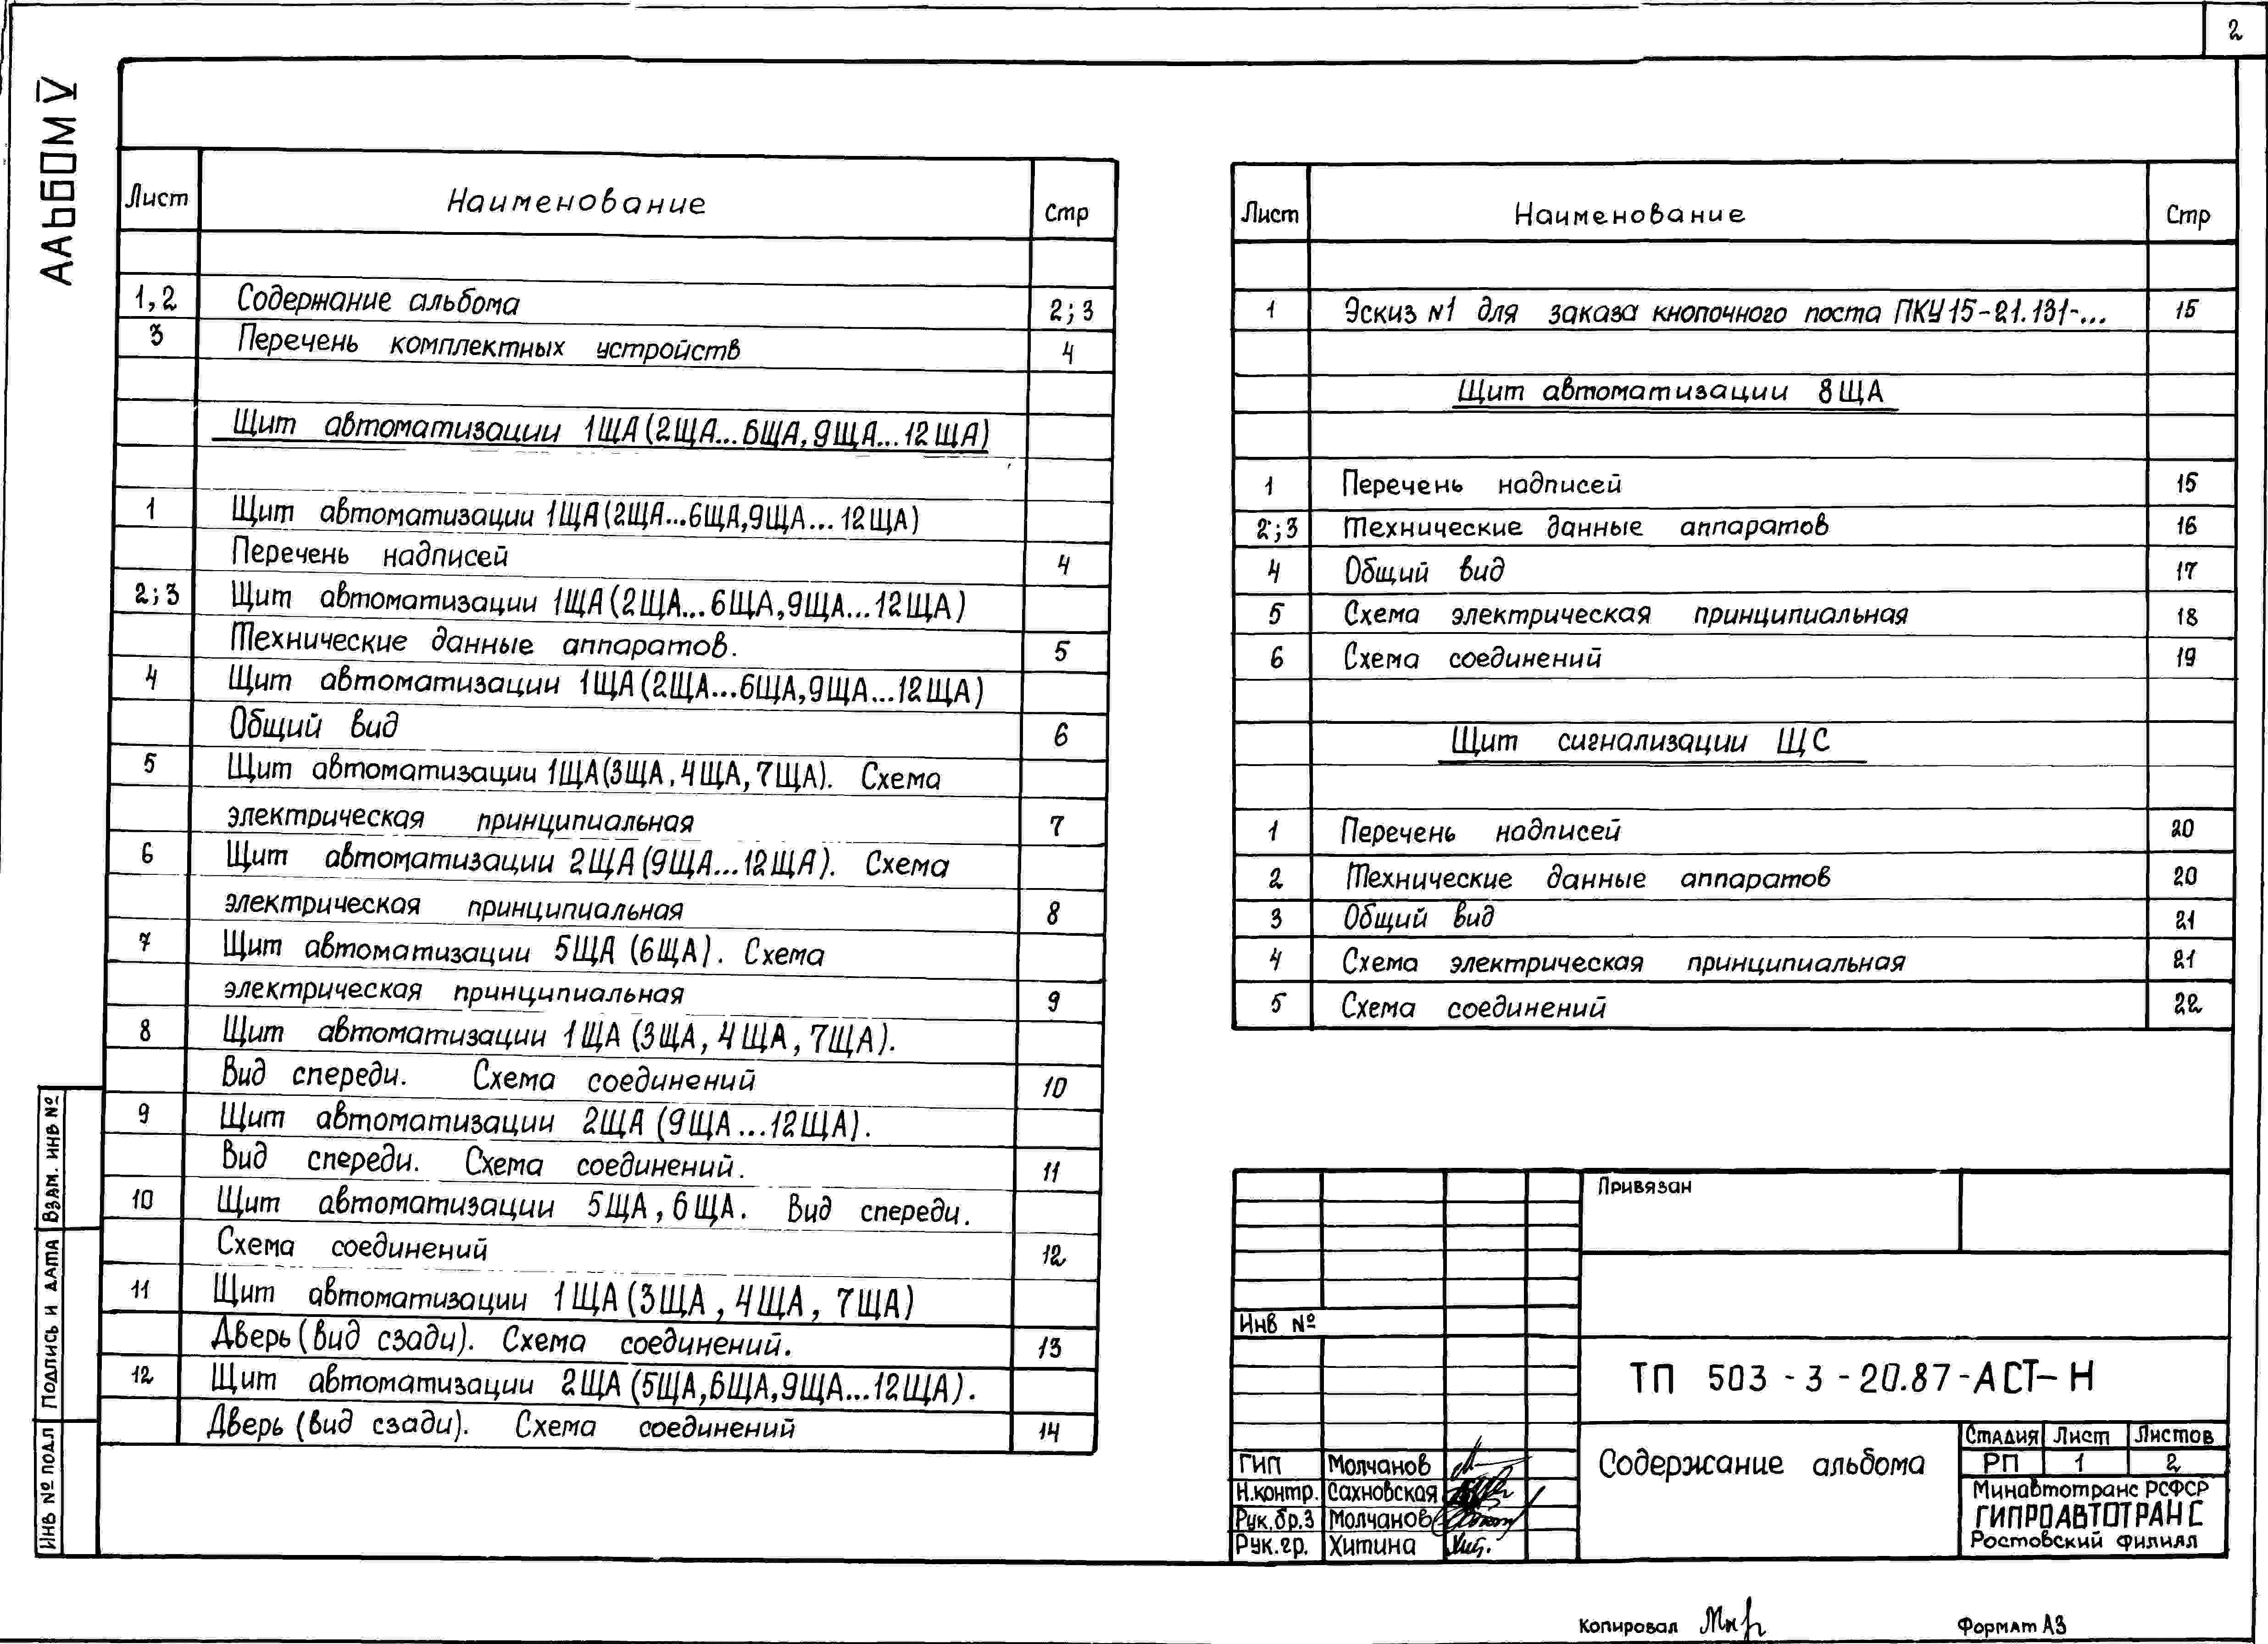 2
Альбом V
Лист Наименование Стр
1,2 Содержание альбома 2;3
3 Перечень комплектных устройств 4
Щит автоматизации 1ЩА(2ЩА...6ЩА,9ЩА...12ЩА)
1 Щит автоматизации 1ЩА(2ЩА...6ЩА,9ЩА...12ЩА)
Перечень надписей 4
2;3 Щит автоматизации 1ЩА(2ЩА...6ЩА,9ЩА...12ЩА)
Технические данные аппаратов. 5
4 Щит автоматизации 1ЩА(2ЩА...6ЩА,9ЩА...12ЩА)
Общий вид 6
5 Щит автоматизации 1ЩА(3ЩА,4ЩА,7ЩА). Схема
электрическая принципиальная 7
6 Щит автоматизации 2ЩА(9ЩА...12ЩА). Схема
электрическая принципиальная 8
7 Щит автоматизации 5ЩА (6ЩА). Схема
электрическая принципиальная 9
8 Щит автоматизации 1ЩА (3ЩА, 4ЩА, 7ЩА).
Вид спереди. Схема соединений 10
9 Щит автоматизации 2ЩА (9ЩА...12ЩА).
Вид спереди. Схема соединений. 11
10 Щит автоматизации 5ЩА, 6ЩА. Вид спереди.
Схема соединений 12
11 Щит автоматизации 1ЩА(3ЩА, 4ЩА, 7ЩА)
Дверь (вид сзади). Схема соединений. 13
12 Щит автоматизации 2ЩА(5ЩА,6ЩА,9ЩА...12ЩА).
Дверь (вид сзади). Схема соединений 14
Лист Наименование Стр
1 Эскиз №1 для заказа кнопочного поста ПКУ15-21.131-... 15
Щит автоматизации 8ЩА
1 Перечень надписей 15
2;3 Технические данные аппаратов 16
4 Общий вид 17
5 Схема электрическая принципиальная 18
6 Схема соединений 19
Щит сигнализации ЩС
1 Перечень надписей 20
2 Технические данные аппаратов 20
3 Общий вид 21
4 Схема электрическая принципиальная 21
5 Схема соединений 22
Взам. инв №
Подпись и дата
Инв № подл
Привязан
Инв №
ТП 503-3-20.87-АСТ-Н
ГИП Молчанов
Н.контр. Сахновская
Рук.бр.3 Молчанов
Рук.гр. Хитина
Содержание альбома
Стадия Лист Листов
РП 1 2
Минавтотранс РСФСР
ГИПРОАВТОТРАНС
Ростовский филиал
Копировал
Формат А3